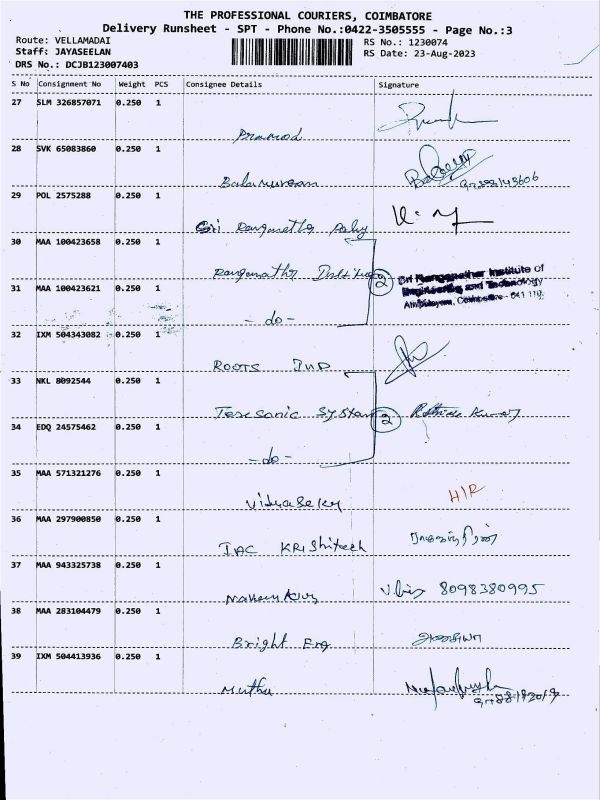 THE PROFESSIONAL COURIERS, COIMBATORE
Delivery Runsheet - SPT - Phone No.:0422-3505555 - Page No.:3
Route: VELLAMADAI
RS No.: 1230074
Staff: JAYASEELAN
RS Date: 23-Aug-2023
DRS No.: DCJB123007403
S No Consignment No Weight PCS Consignee Details Signature
27 SLM 326857071 0.250 1
Pramod
28 SVK 65083860 0.250 1
Balamurugan
29 POL 2575288 0.250 1
Sri Ranganathar Poly
30 MAA 100423658 0.250 1
Ranganathar Institute 2 Sri Ranganathar Institute of
Engineering and Technology
31 MAA 100423621 0.250 1
Athipalayam, Coimbatore - 641 110.
-do-
32 IXM 504343082 0.250 1
ROOTS IND
33 NKL 8092544 0.250 1
System 2
34 EDQ 24575462 0.250 1
-do-
35 MAA 571321276 0.250 1
H/R
36 MAA 297900850 0.250 1
KRIShitech
37 MAA 943325738 0.250 1
8098380995
38 MAA 283104479 0.250 1
Bright Eng
39 IXM 504413936 0.250 1
Muthu